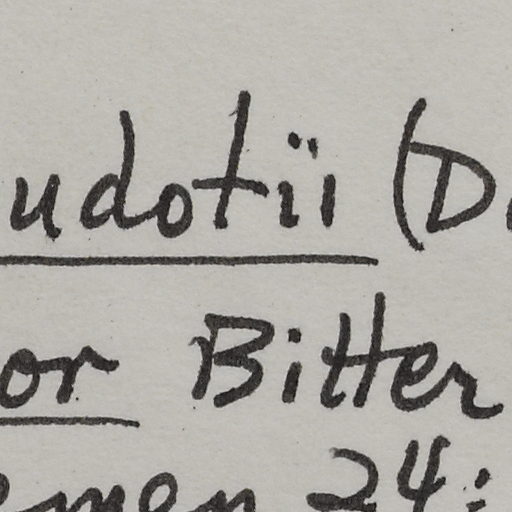 udotii (D
or Bitter
emen 24: